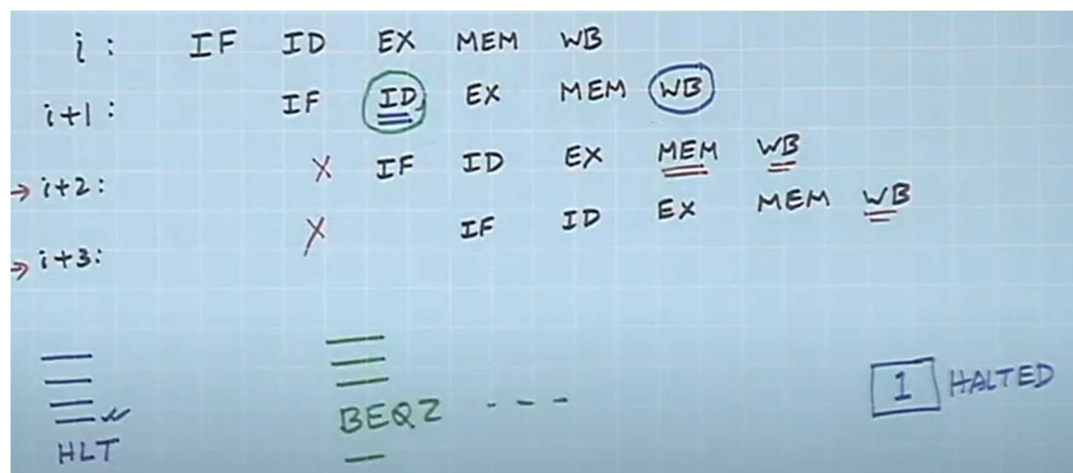 i : IF ID EX MEM WB
i+1 : IF ID EX MEM WB
→ i+2 : X IF ID EX MEM WB
→ i+3 : X IF ID EX MEM WB
HLT
BEQZ - - -
1 HALTED